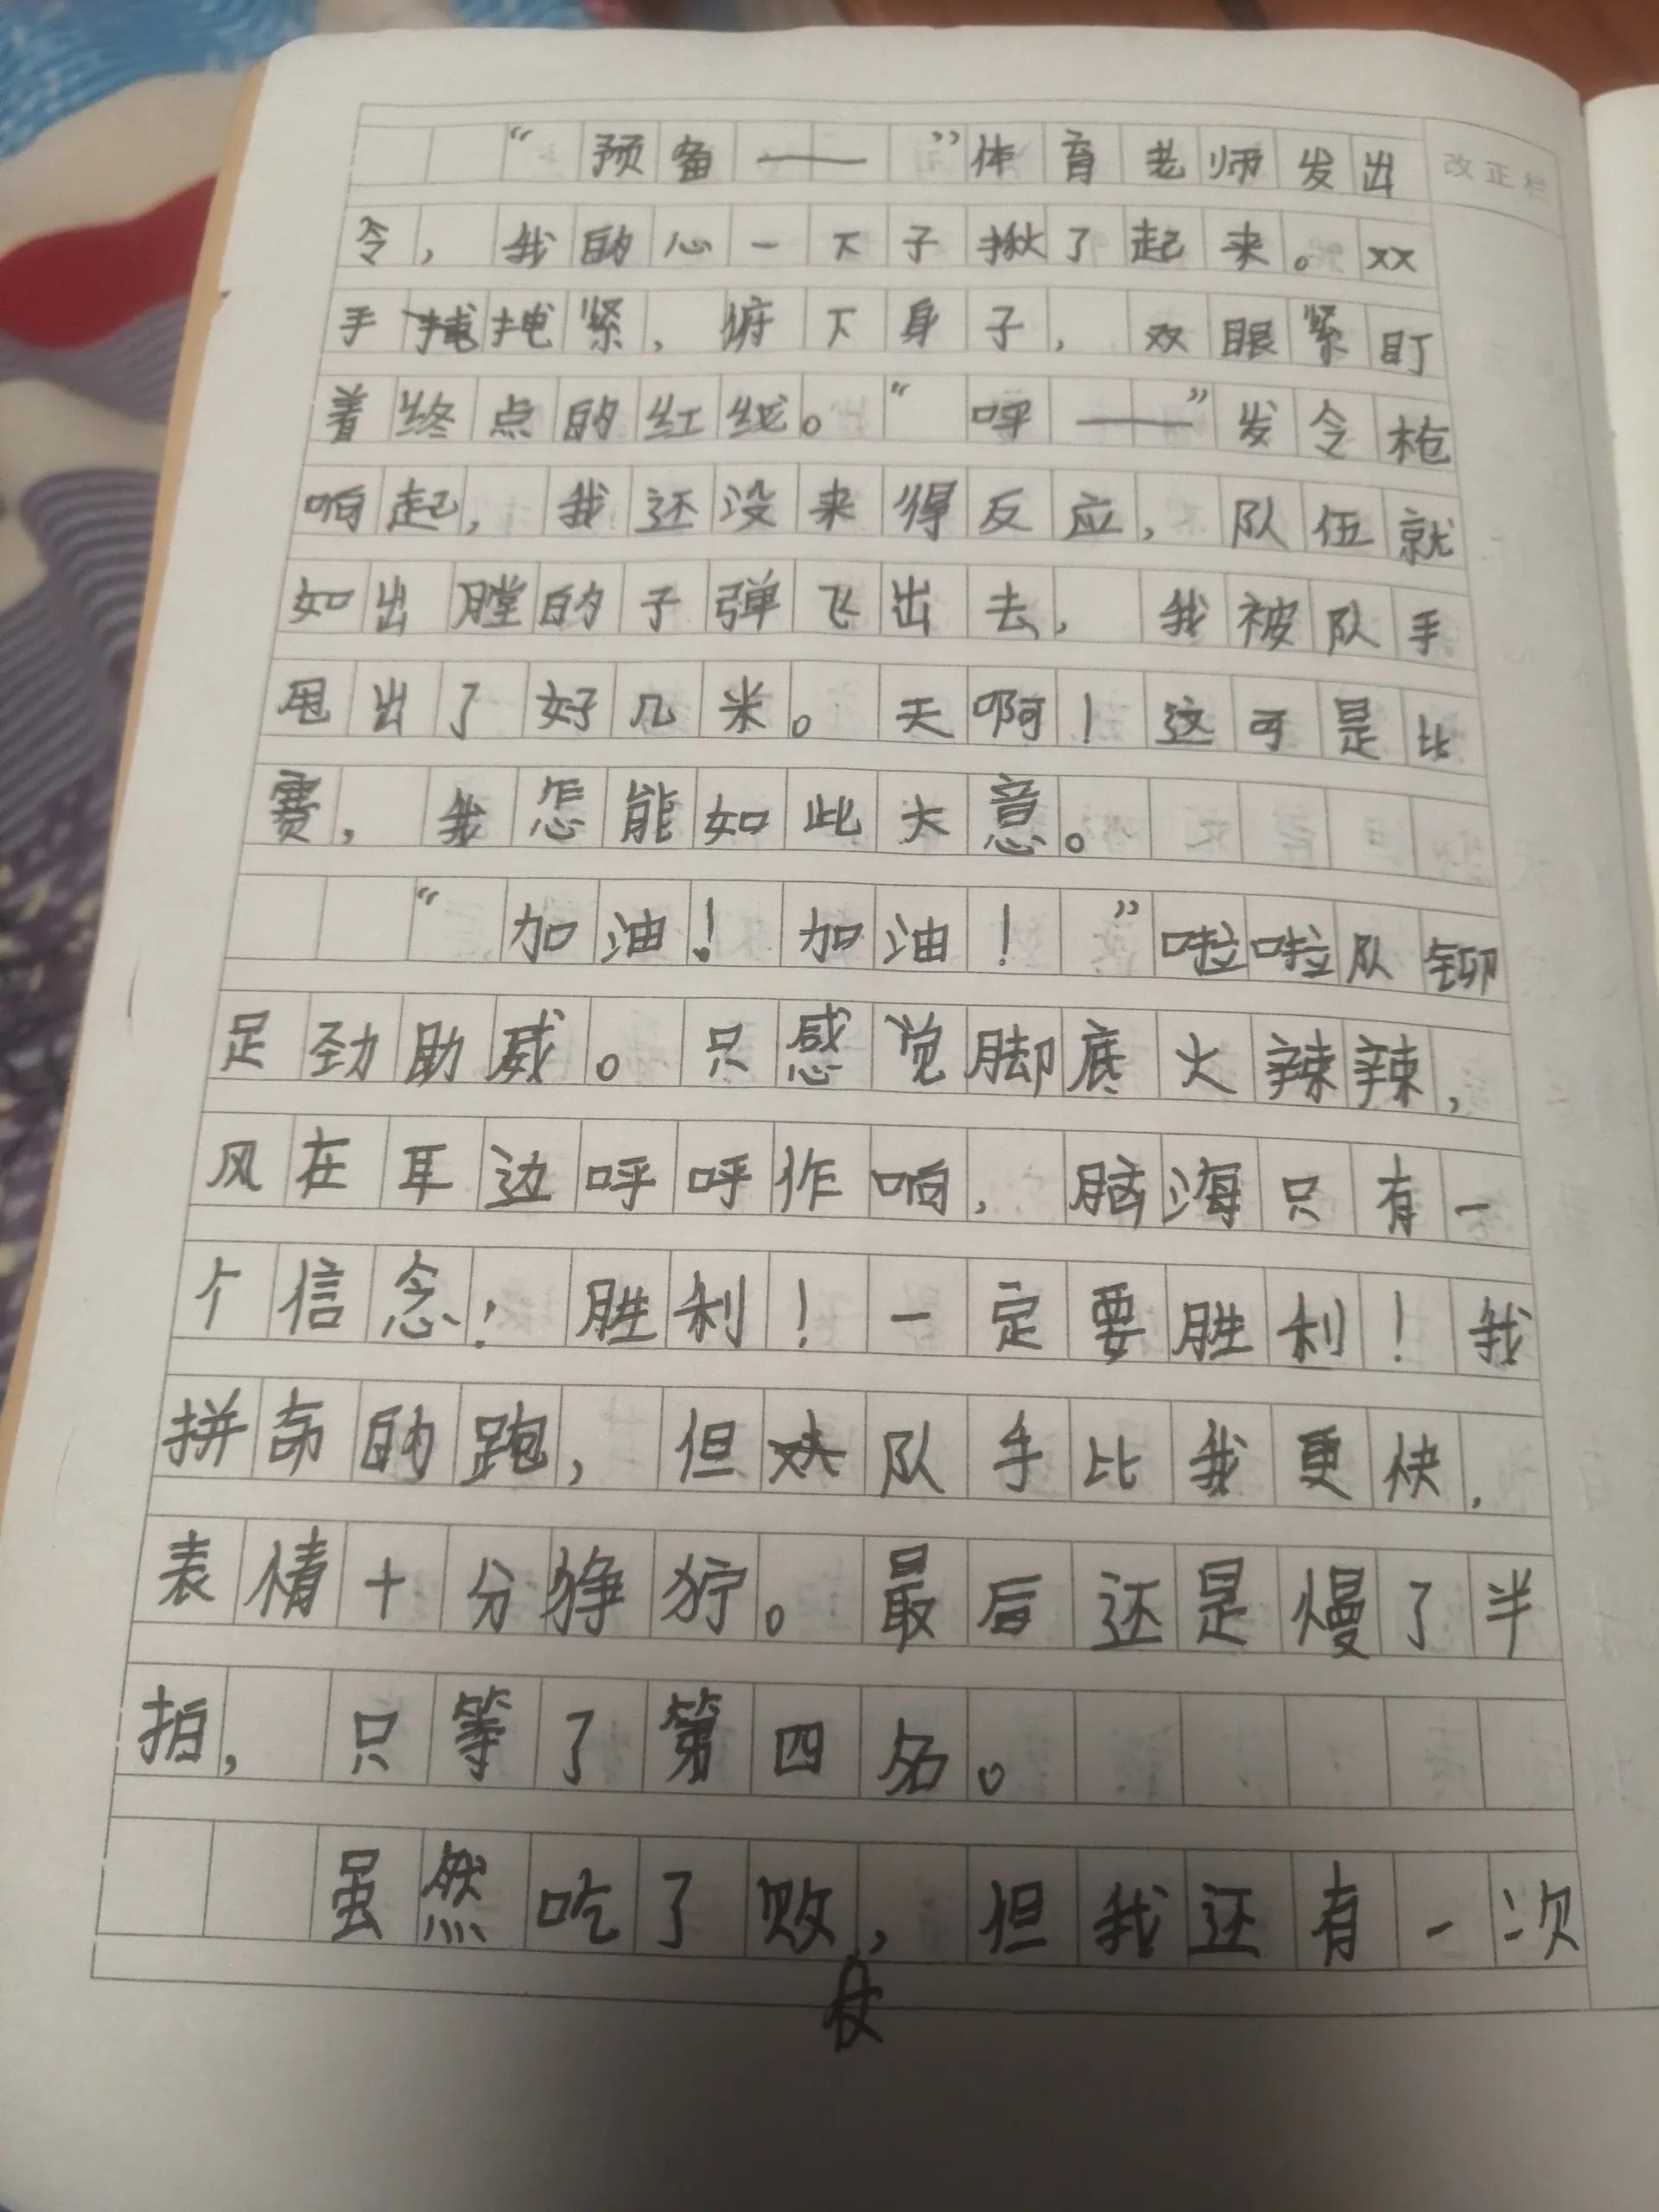 “预备——”体育老师发出
改正栏
令，我的心一下子揪了起来。双
手掩紧，俯下身子，双眼紧盯
着终点的红线。“呼——”发令枪
响起，我还没来得反应，队伍就
如出膛的子弹飞出去，我被队手
甩出了好几米。天啊！这可是比
赛，我怎能如此大意。
“加油！加油！”啦啦队铆
足劲助威。只感觉脚底火辣辣，
风在耳边呼呼作响，脑海只有一
个信念：胜利！一定要胜利！我
拼命的跑，但队手比我更快，
表情十分狰狞。最后还是慢了半
拍，只等了第四名。
虽然吃了败仗，但我还有一次